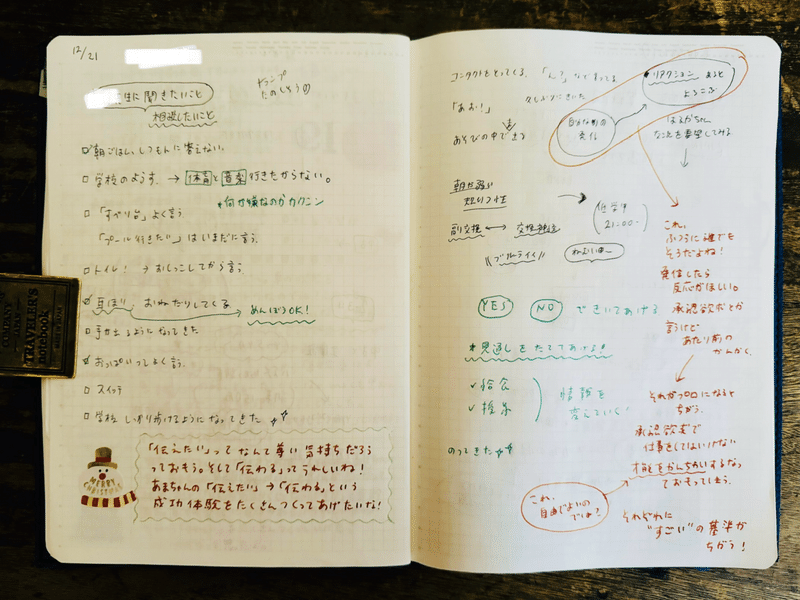 12/21
生に聞きたいこと
相談したいこと
トランプ
たのしそう
朝ごはん、しつもんに答えない。
学校のようす → 体育と音楽 行きたがらない。
何が嫌なのかカクニン
「すべり台」よく言う
「プール行きたい」はいまだに言う
トイレ! → おしっこしてから言う
耳ほり おねだりしてくる
めんぼうOK!
手が出るようになってきた
おっぱいってよく言う
スイッチ
学校 しっかり歩けるようになってきた ☆☆
MERRY
CHRISTMAS
「伝えたい」ってなんて尊い気持ちだろう
っておもう。そして「伝わる」ってうれしいね!
あまちゃんの「伝えたい」→「伝わる」という
成功体験をたくさんつくってあげたいな!
TRAVELER'S
notebook
COMPANY
コンタクトをとってくる。「ん?」など言ってる
「あお!」 久しぶりにきいた
あそびの中で出る
リアクションあると
よろこぶ
自分な前の
発信
はるかちゃん
なことを要望してみる
朝が弱い
副交換 ↔ 交換神経
低学年
21:00〜
"ブルーライト"
YES NO できいてあげる
見通しをたててあげる!
✓給食
✓授業
情報を
変えていく
のってきた ☆☆
これ、
ふつうに誰でも
そうだよね!
発信したら
反応がほしい。
承認欲求とか
言うけど
あたり前の
かんかく。
それがプロになると
ちがう。
承認欲求で
仕事をしてはいけない
才能をかんちがいするなっ
ておもってしまう。
これ、
自由でよいの
では?
それぞれに
"すごい"の基準が
ちがう!